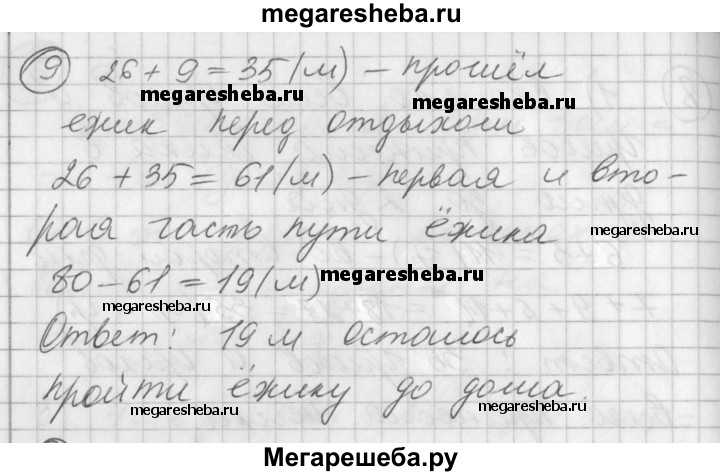 megaresheba.ru
9 26 + 9 = 35 (м) – прошёл
megaresheba.ru megaresheba.ru
ежик перед отдыхом
26 + 35 = 61 (м) – первая и вто-
рая часть пути ёжика megaresheba.ru
80 – 61 = 19 (м) megaresheba.ru
megaresheba.ru
Ответ: 19 м осталось
пройти ёжику до дома.
megaresheba.ru megaresheba.ru
Мегарешеба.ру